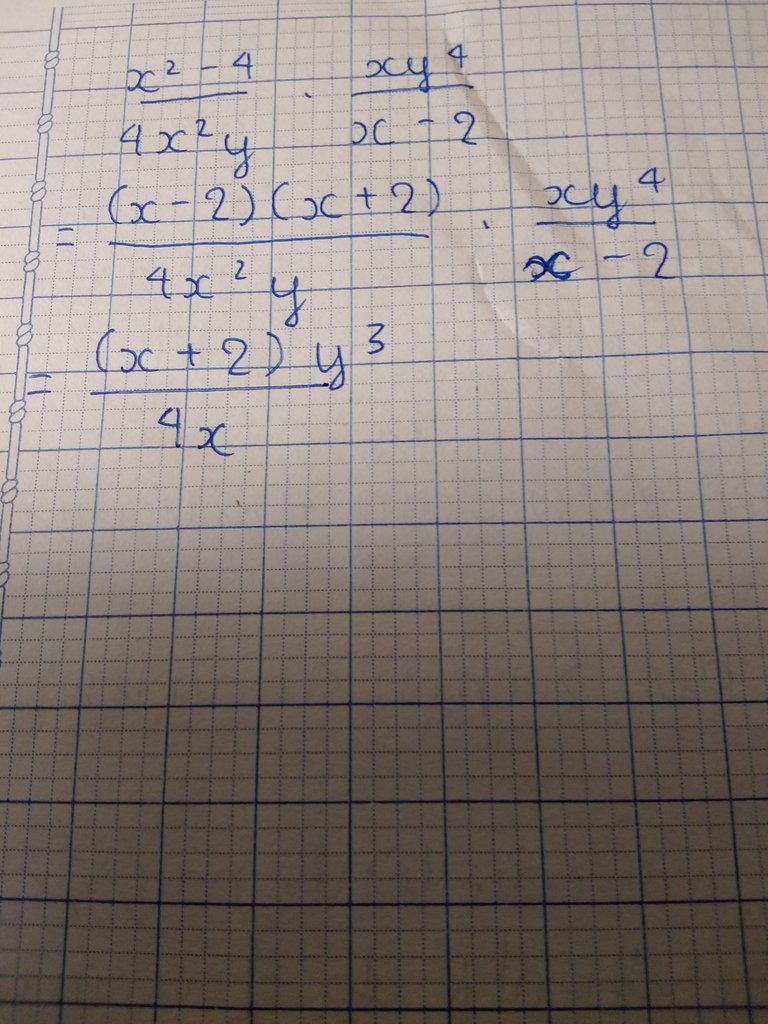 x² - 4 / 4x²y · xy⁴ / x - 2
= (x - 2)(x + 2) / 4x²y · xy⁴ / x - 2
= (x + 2) y³ / 4x